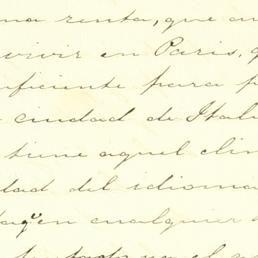 na renta, que au
vivir en Paris, q
ficiente para p
ciudad de Itali
tiene aquel clim
dad del idioma
en cualquier